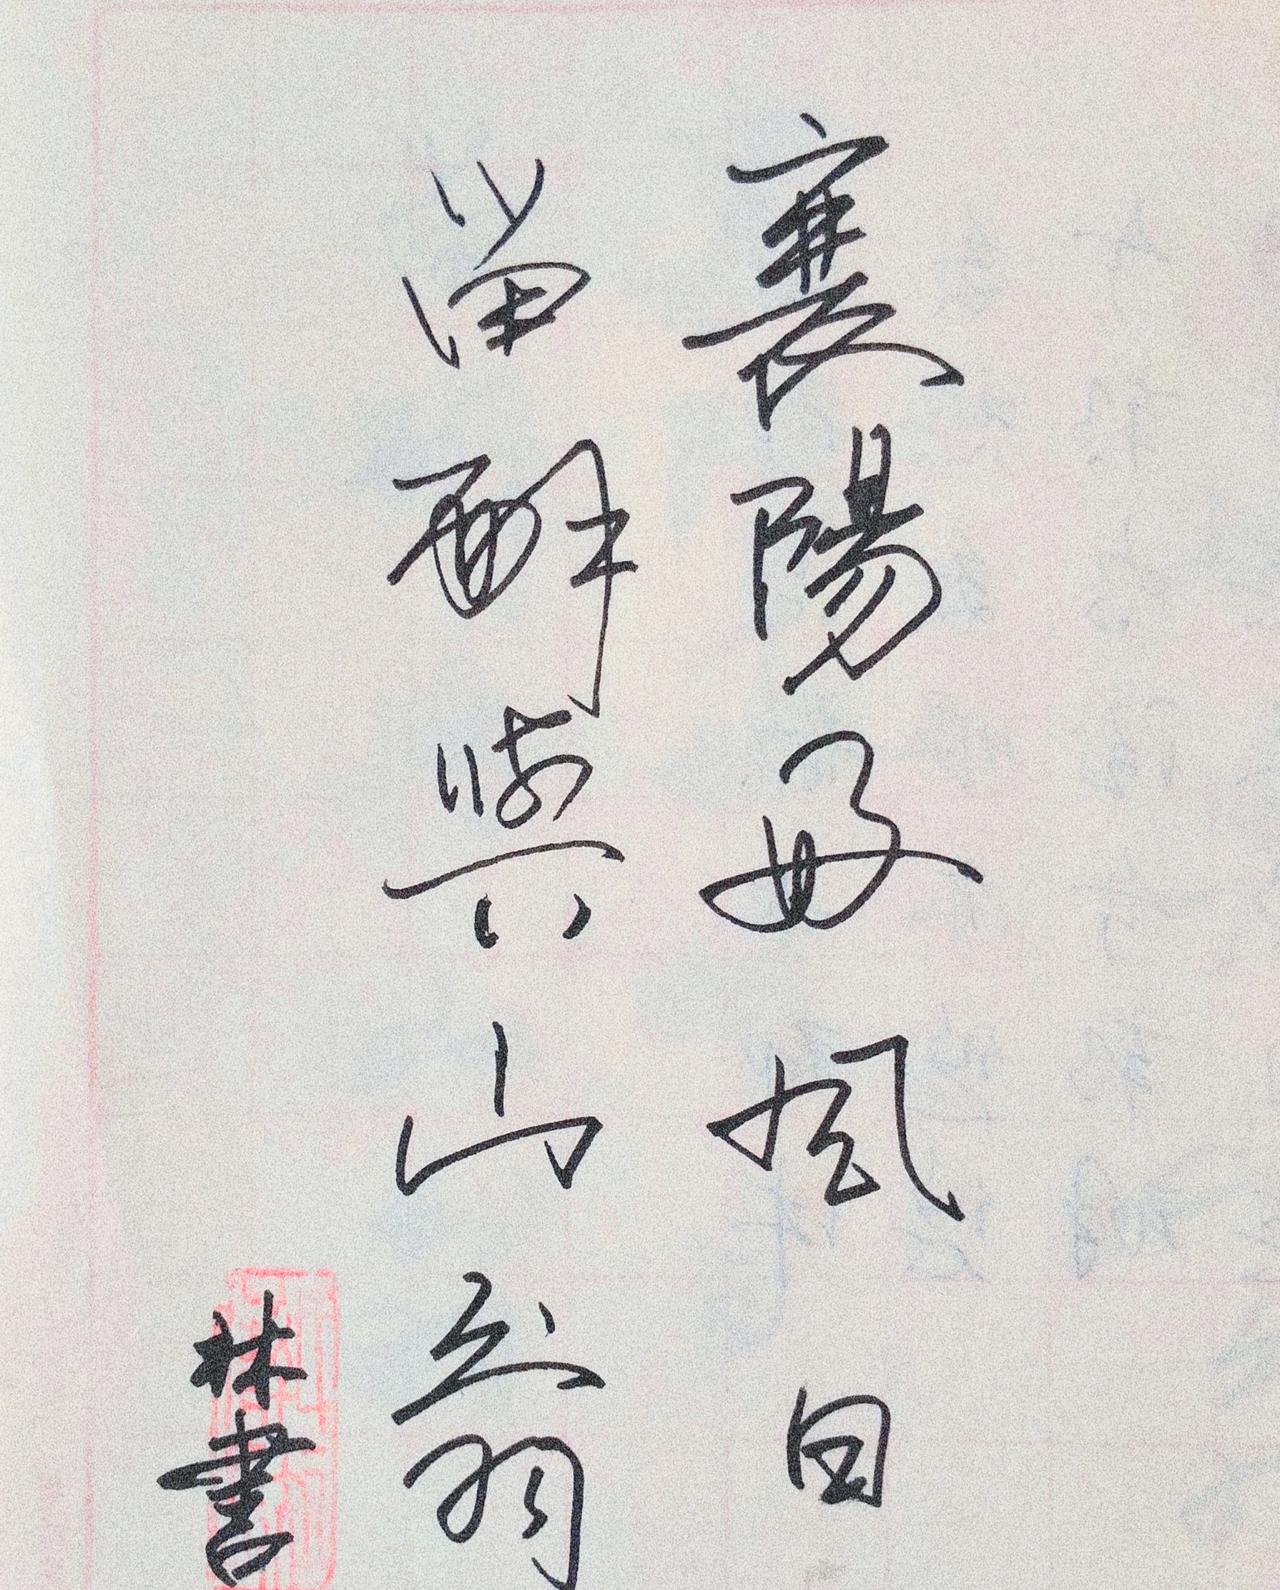 襄陽好風日
留醉與山翁
林書